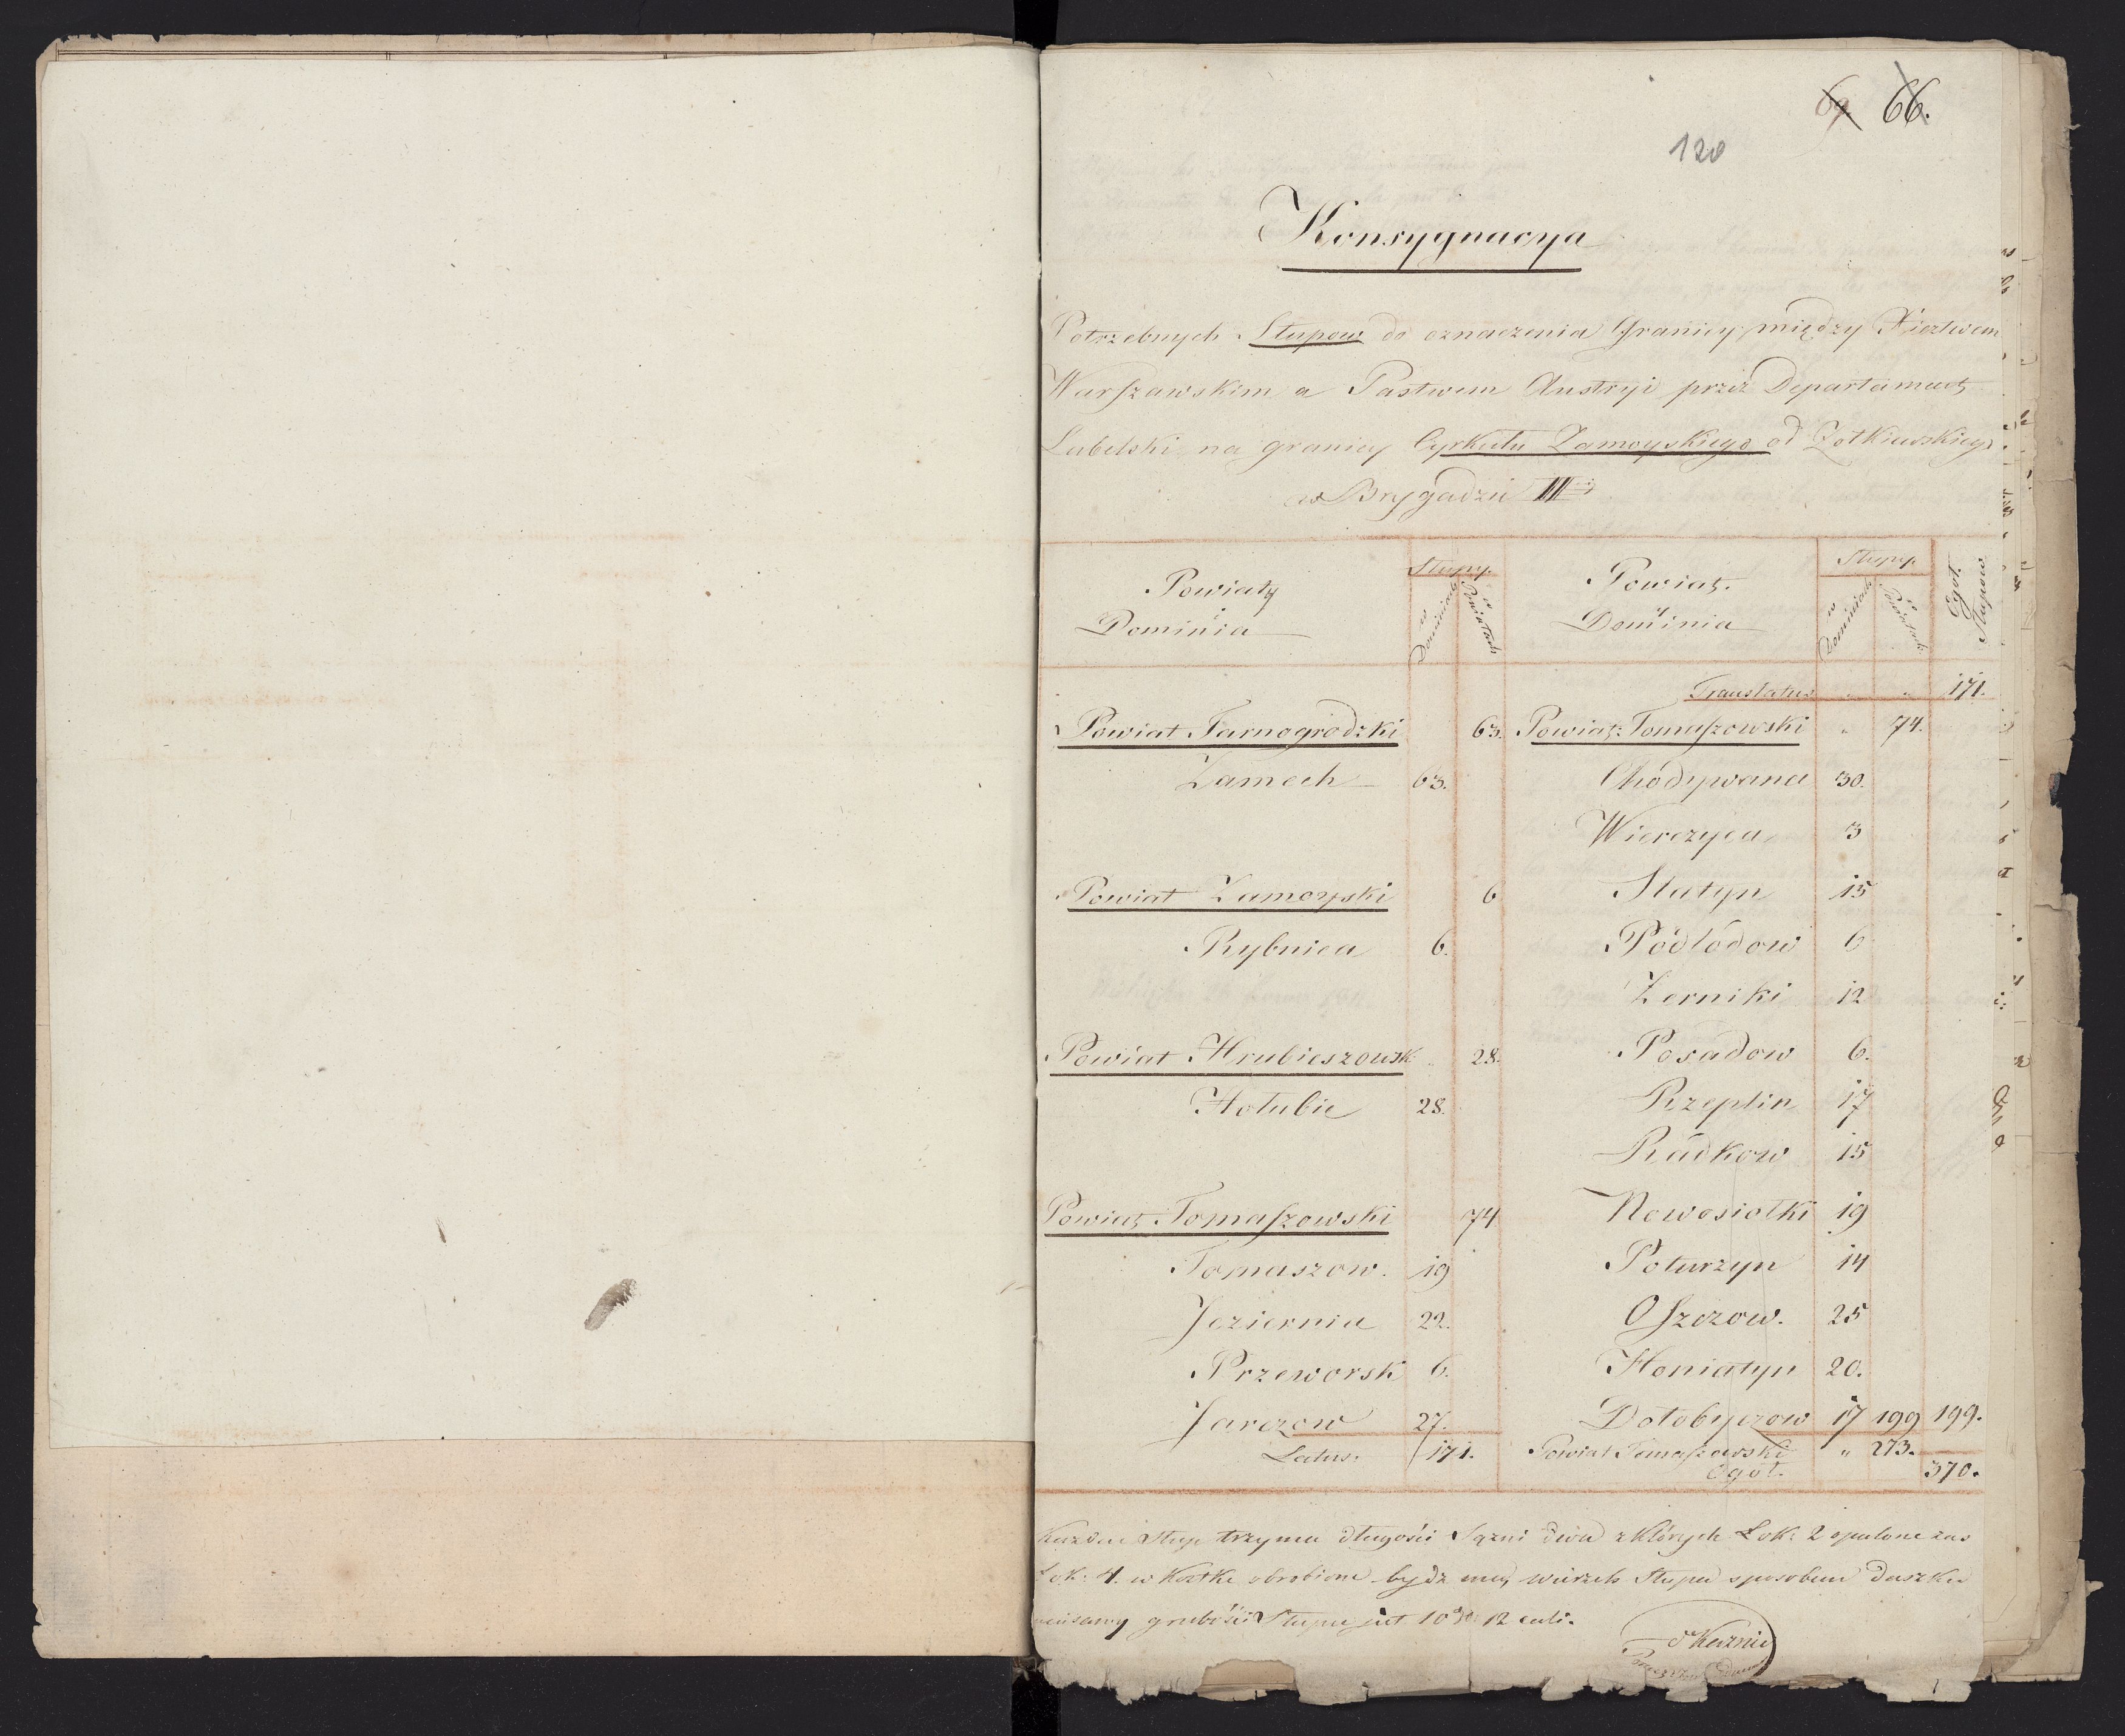 69 66.
120
Konsygnacya
Potrzebnych Słupow do oznaczenia Granicy między Xięztwem
Warszawskim a Pastwem Austryi przez Departament
Lubelski na granicy Cyrkułu Zamoyskiego od Żołkiewskiego
w Brygadzie III
Powiaty
i
Dominia
Słupy.
w Dominiach
w Powiatach
Powiat.
i
Dominia
Słupy.
w Dominiach
w Powiatach
Ogoł. Słupow
Translatus " " 171.
Powiat Tarnogrodzki 63.
Powiat Tomaszowski " 74.
Zamech 63.
Chodywanci 30.
Wierczyca 3
Powiat Zamoyski 6
Slatyn 15
Rybnica 6.
Podlodow 6
Zerniki 12
Powiat Hrubieszowsk " 28.
Posadow 6.
Hołubie 28.
Rzeplin 17
Radkow 15
Powiat Tomaszowski 74
Nowosiołki 19
Tomaszow. 19
Poturzyn 14
Jeziernia 22.
Oszczow. 25
Przeworsk 6.
Honiatyn 20.
Jarczow 27.
Dołobyczow 17 199 199.
Latus. 171.
Powiat Tomaszowski " 273.
Ogoł. 370.
Każden Słup trzyma długości Sązni dwa z których Łok: 2 opalone zas
Łok: 4. w Kostke obrobione bydz maią wierzch Słupa sposobem daszku
grubości Słupa jest 10 do 12 cali.